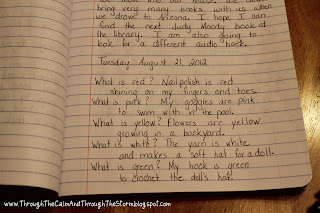 bring very many books with us when
we drove to Arizona. I hope I can
find the next Judy Moody book at
the library. I am also going to
look for a different audio book.
Tuesday, August 21, 2012
What is red? Nail polish is red
shining on my fingers and toes.
What is pink? My goggles are pink
to swim with in the pool.
What is yellow? Flowers are yellow
growing in a backyard.
What is white? The yarn is white
and makes a soft hat for a doll.
What is green? My hook is green
to crochet the doll's hat.
www.ThroughTheCalmAndThroughTheStorm.blogspot.com